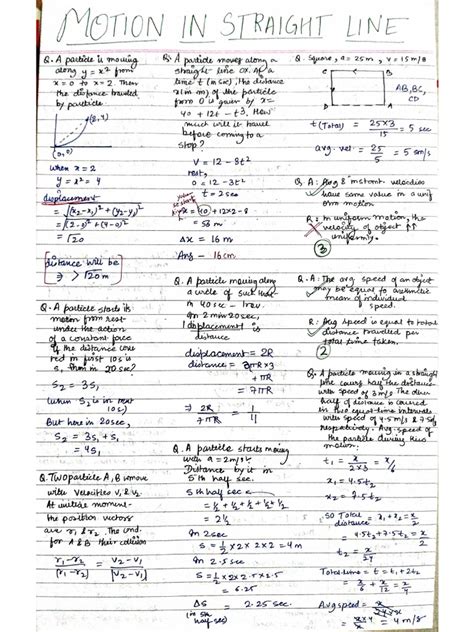 MOTION IN STRAIGHT LINE
Q. A particle is moving
along y = x² from
x = 0 to x = 2. Then
the distance traveled
by particle.
(2,4)
(0,0)
when x = 2
y = x² = 4
displacement
= √(x₂-x₁)² + (y₂-y₁)²
= √(2-0)² + (4-0)²
= √20
distance will be
> √20 m
Q. A particle starts its
motion from rest
under the action
of a constant force
if the distance cove
red in first 10s is
S, then in 20 sec?
S₂ = 3S,
(when S₂ is in next
10s)
But here in 20 sec,
S₂ = 3S₁ + S₁
= 4S₁
Q. Two particle A, B move
with velocities V₁ & V₂
At initial moment-
the position vectors
are r₁ & r₂. The cond.
for A & B their collision
r₁-r₂ / |r₁-r₂| = V₂-V₁ / |V₂-V₁|
Q. A particle moves along a
straight line ox. At a
time t (in sec), the distance
x (in m) of the particle
from O is given by x =
40 + 12t - t³. How
much will it travel
before coming to a
stop?
V = 12 - 3t²
rest,
0 = 12 - 3t²
t = 2 sec
x = 40 + 12×2 - 8
= 56 m
Δx = 16 m
Ans - 16 m
Q. A particle moving along
a circle of
40 sec - 1 rev.
In 2 min 20 sec,
displacement is
distance
displacement = 2R
distance =
+ πR
= 7πR
⇒ 2R / 7πR =
Q. A particle starts moving
with a = 2 m/s².
Distance by it in
5th half sec.
5th half sec
= ½ + ½ + ½ + ½ + ½
= 2½
In 2 sec
S = ½ × 2 × 2 × 2 = 4 m
In 2.5 sec
S = ½ × 2 × 2.5 × 2.5
= 6.25
ΔS = 2.25 sec.
(in 5th
half sec)
Q. Square, a = 25 m, v = 15 m/s
C B
D A
AB, BC,
CD
t (Total) = 25×3 / 15 = 5 sec
avg. vel = 25/5 = 5 m/s
Q. A: Avg & instant. velocities
have same value in a unif
orm motion
R: In uniform motion, the
velocity of object ↑↑
uniformly.
3
Q. A: The avg speed of an object
may be equal to arithmetic
mean of individual
speed.
R: Avg speed is equal to total
distance travelled per
total time taken.
2
Q. A particle moving in a straight
line covers half the distance
with speed of 3 m/s. The other
half of distance is covered
in two equal time intervals
with speed of 4.5 m/s & 7.5 m/s
respectively. Avg. speed of
the particle during this
motion.
t₁ = x / 2×3 = x/6
x₁ = 4.5t₂
x₂ = 7.5t₂
so Total
distance = x₁ + x₂ = x/2
= 4.5t₂ + 7.5t₂ = x/2
t₂ = x/24
Total time = t₁ + 2t₂
= x/6 + x/12 = x/4
Avg speed =
= 4 m/s